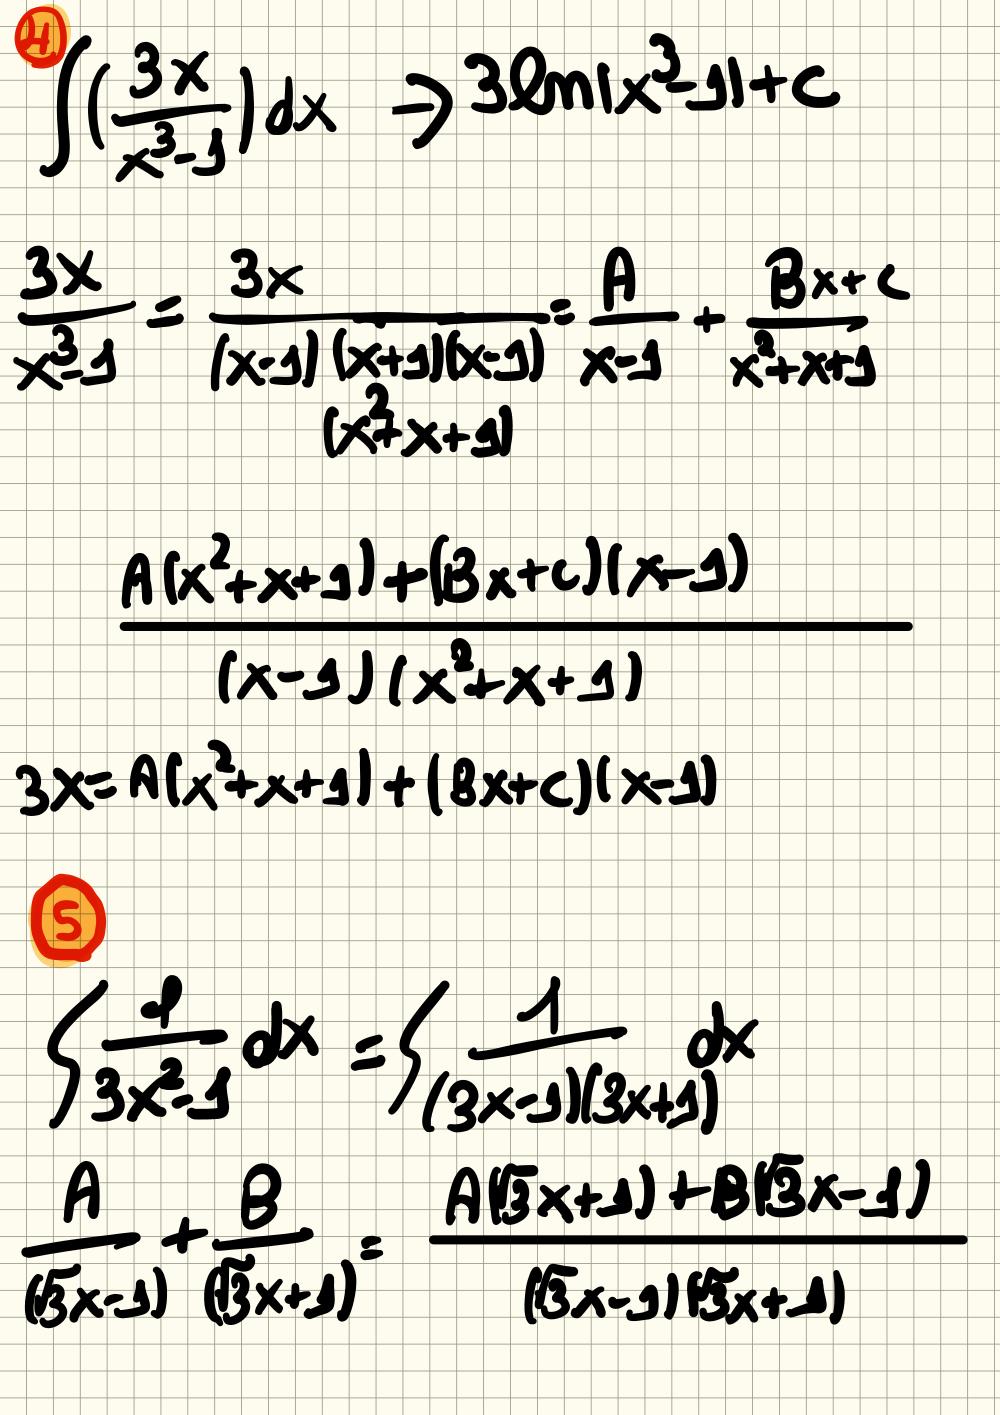 4
∫(3x/(x³-1))dx → 3ln|x³-1|+C
3x/(x³-1) = 3x/((x-1)(x+1)(x-1)) = A/(x-1) + (Bx+C)/(x²+x+1)
(x²+x+1)
(A(x²+x+1)+(Bx+C)(x-1))/((x-1)(x²+x+1))
3x=A(x²+x+1)+(Bx+C)(x-1)
5
∫1/(3x²-1) dx = ∫1/((3x-1)(3x+1)) dx
A/(√3x-1) + B/(√3x+1) = (A(√3x+1)+B(√3x-1))/((√3x-1)(√3x+1))